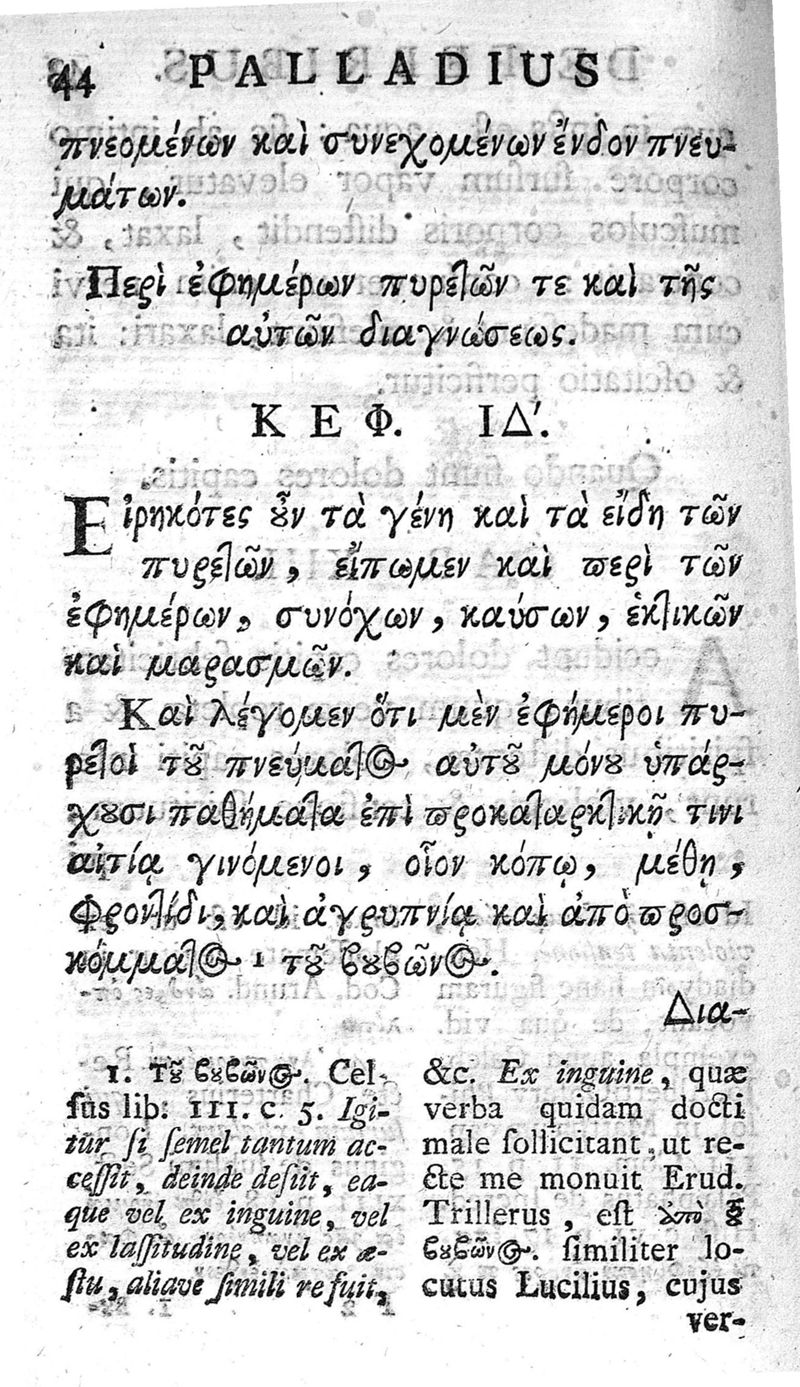 44 PALLADIUS
πνεομένων καὶ συνεχομένων ἔνδον πνευ-
μάτων.
Περὶ ἐφημέρων πυρετῶν τε καὶ τῆς
αὐτῶν διαγνώσεως.
ΚΕΦ. ΙΔ'.
Εἰρηκότες ȣ̓͂ν τὰ γένη καὶ τὰ εἴδη τῶν
πυρετῶν, εἴπωμεν καὶ ϖερὶ τῶν
ἐφημέρων, συνόχων, καύσων, ἑκτικῶν
καὶ μαρασμῶν.
Καὶ λέγομεν ὅτι μὲν ἐφήμεροι πυ-
ρετοὶ τȣ͂ πνεύματος αὐτȣ͂ μόνȣ ὑπάρ-
χȣσι παθήματα ἐπὶ ϖροκαταρκτικῇ τινι
αἰτίᾳ γινόμενοι, οἷον κόπῳ, μέθῃ,
Φροντίδι, καὶ ἀγρυπνίᾳ καὶ ἀπὸ ϖροσ-
κόμματος 1 τȣ͂ βȣβῶνος.
Δια-
1. Τȣ͂ βȣβῶνος. Cel-
ſus lib. III. c. 5. Igi-
tur ſi ſemel tantum ac-
ceſſit, deinde deſiit, ea-
que vel ex inguine, vel
ex laſſitudine, vel ex æ-
ſtu, aliave ſimili re fuit,
&c. Ex inguine, quæ
verba quidam docti
male ſollicitant, ut re-
cte me monuit Erud.
Trillerus, eſt ἀπὸ τȣ͂
βȣβῶνος. ſimiliter lo-
cutus Lucilius, cujus
ver-